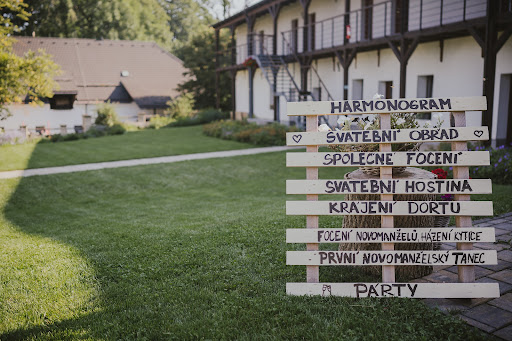 HARMONOGRAM
SVATEBNÍ OBŘAD
SPOLEČNÉ FOCENÍ
SVATEBNÍ HOSTINA
KRÁJENÍ DORTU
FOCENÍ NOVOMANŽELŮ, HÁZENÍ KYTICE
PRVNÍ NOVOMANŽELSKÝ TANEC
PÁRTY